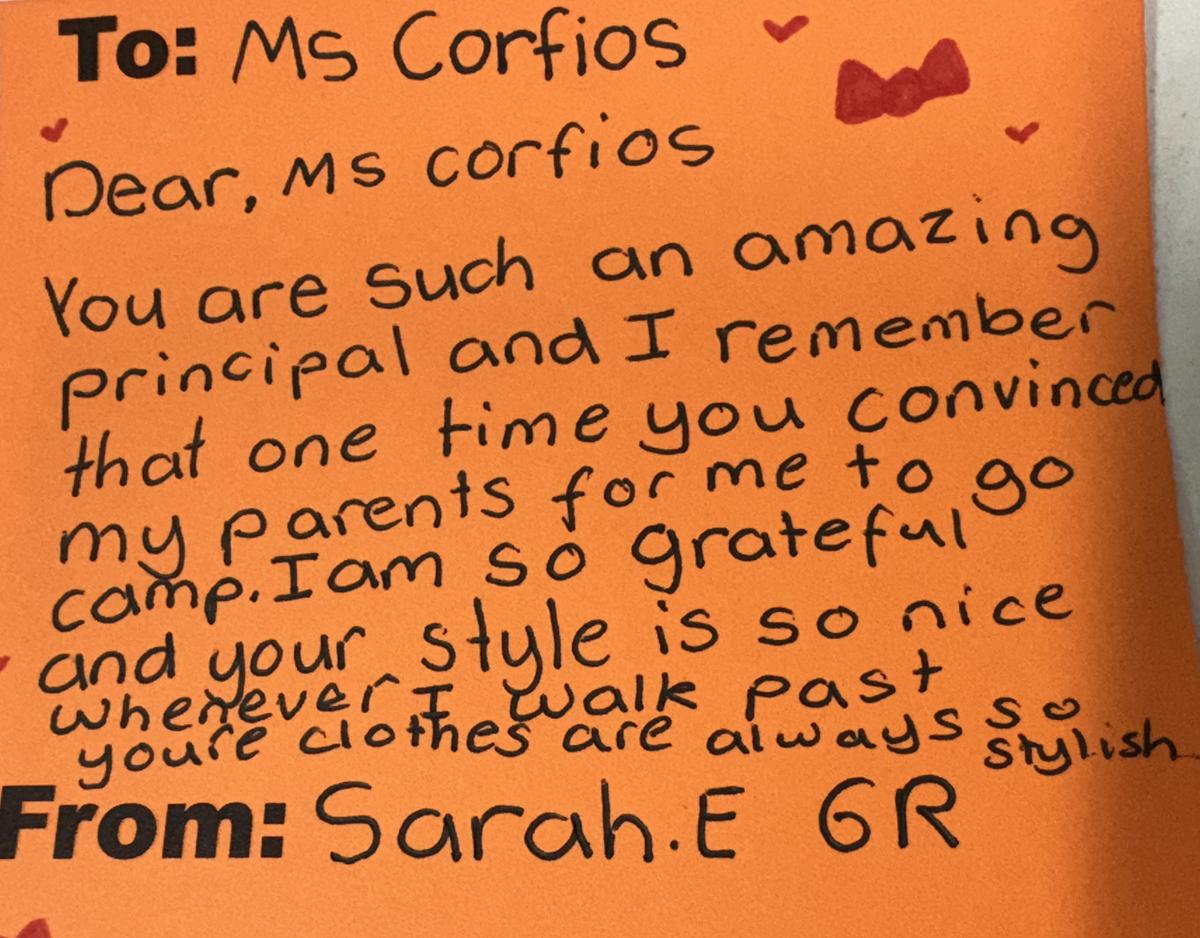 To: Ms Corfios
Dear, Ms corfios
You are such an amazing
principal and I remember
that one time you convinced
my parents for me to go
camp. I am so grateful
and your style is so nice
whenever I walk past
youre clothes are always so
stylish
From: Sarah.E 6R